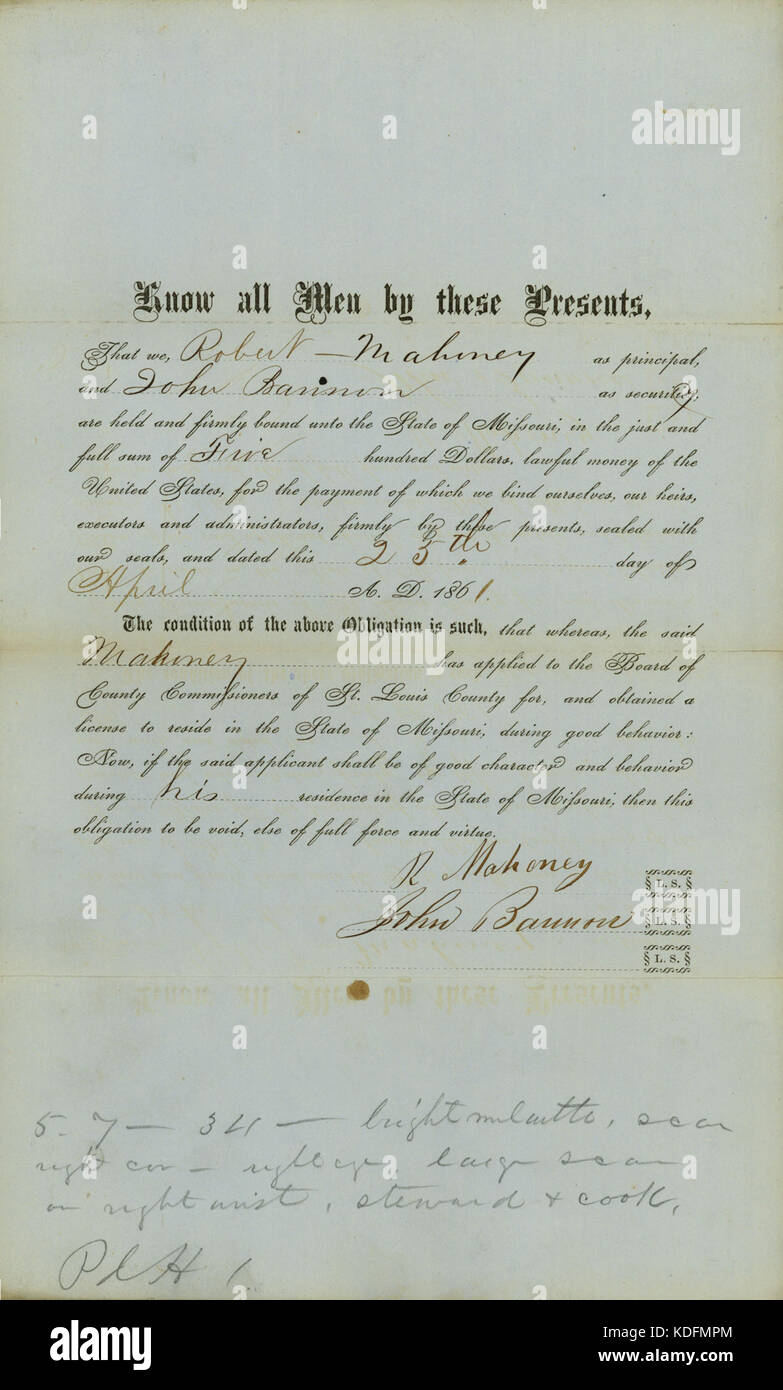 Know all Men by these Presents,
That we, Robert Mahoney as principal,
and John Bannon as security,
are held and firmly bound unto the State of Missouri, in the just and
full sum of Five hundred Dollars, lawful money of the
United States, for the payment of which we bind ourselves, our heirs,
executors and administrators, firmly by these presents, sealed with
our seals, and dated this 25th day of
April A. D. 1861.
The condition of the above Obligation is such, that whereas, the said
Mahoney has applied to the Board of
County Commissioners of St. Louis County for, and obtained a
license to reside in the State of Missouri, during good behavior:
Now, if the said applicant shall be of good character and behavior
during his residence in the State of Missouri, then this
obligation to be void, else of full force and virtue.
R Mahoney L. S.
John Bannon L. S.
L. S.
5-7 — 34 — bright mulatto, scar
right cor - right eye, large scar
on right wrist, steward & cook,
alamy
alamy stock photo
KDFMPM
www.alamy.com